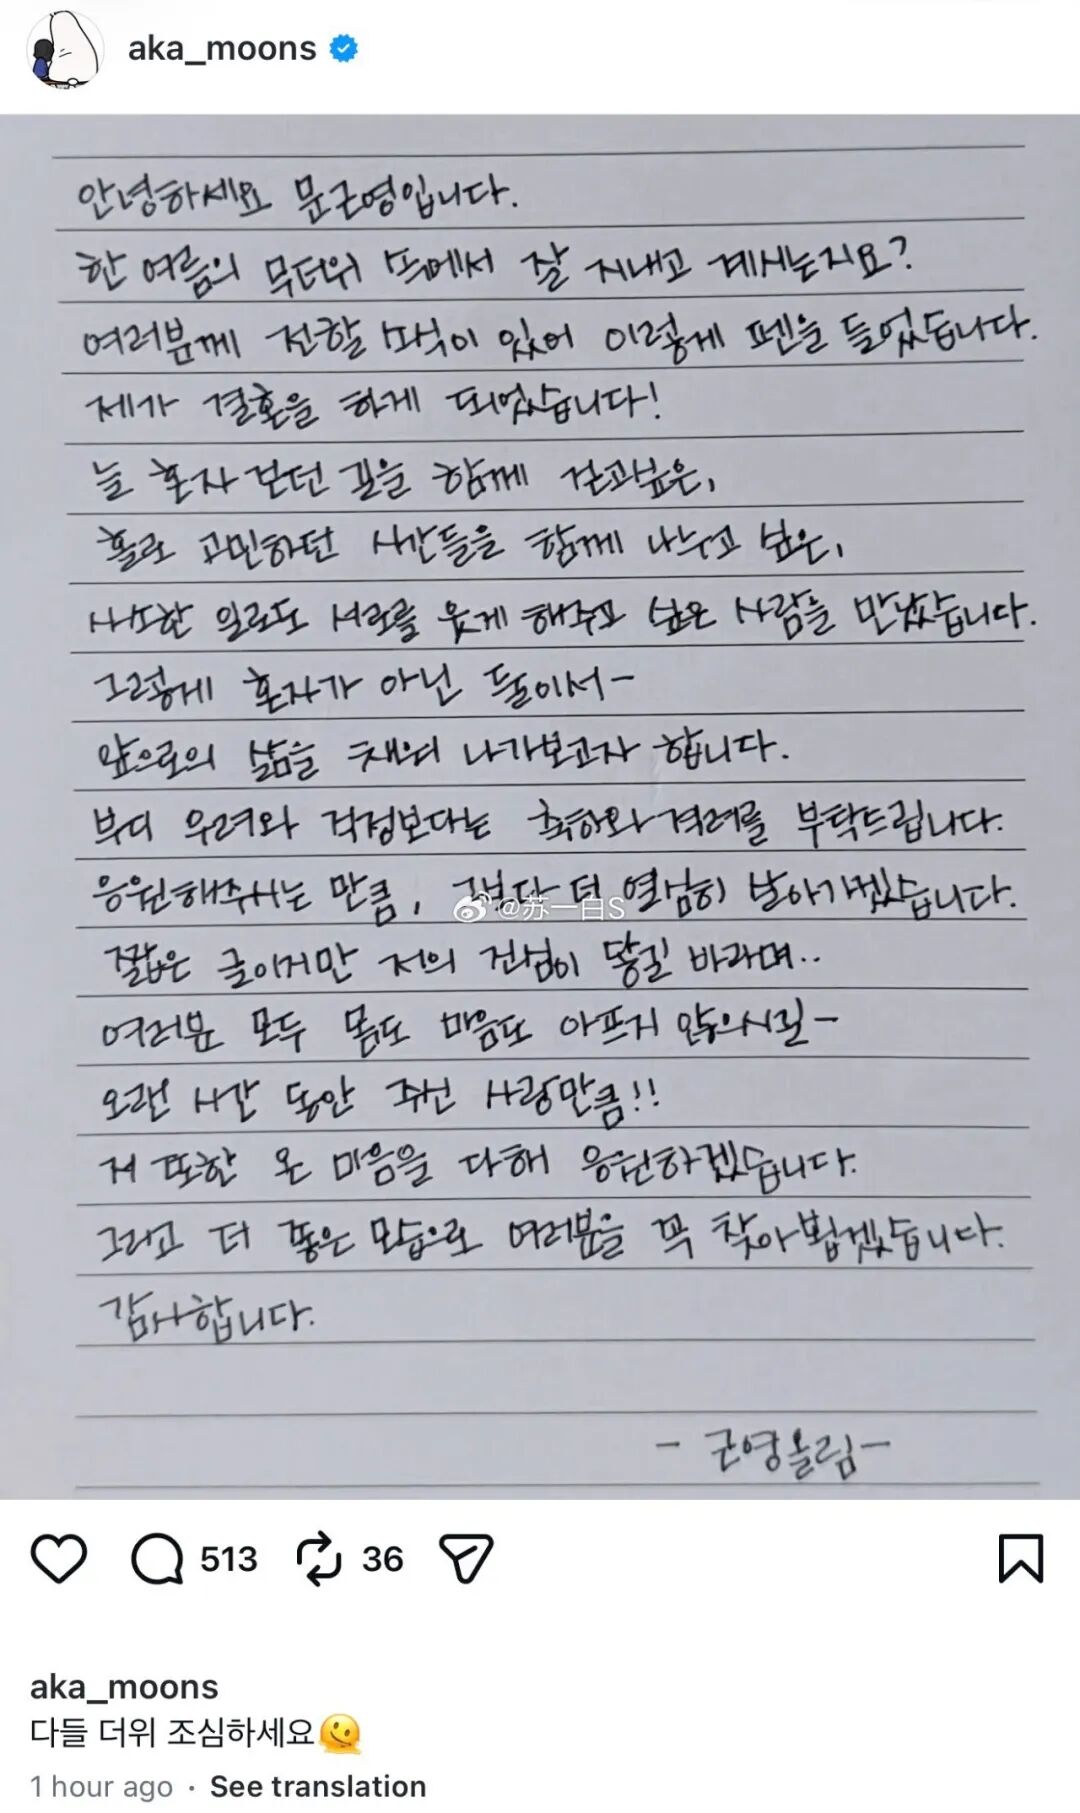 aka_moons
안녕하세요 문근영입니다.
한 여름의 무더위 속에서 잘 지내고 계시는지요?
여러분께 전할 소식이 있어 이렇게 펜을 들었습니다.
제가 결혼을 하게 되었습니다!
늘 혼자 걷던 길을 함께 걷고싶은,
홀로 고민하던 시간들을 함께 나누고 싶은,
사소한 일로도 서로를 웃게 해주고 싶은 사람을 만났습니다.
그렇게 혼자가 아닌 둘이서-
앞으로의 삶을 채워 나가보고자 합니다.
부디 우려와 걱정보다는 축하와 격려를 부탁드립니다.
응원해주시는 만큼, 그보다 더 열심히 살아가겠습니다.
@苏一白S
짧은 글이지만 저의 진심이 닿길 바라며..
여러분 모두 몸도 마음도 아프지 않으시길-
오랜 시간 동안 주신 사랑만큼!!
저 또한 온 마음을 다해 응원하겠습니다.
그리고 더 좋은 모습으로 여러분을 꼭 찾아뵙겠습니다.
감사합니다.
- 근영올림-
513
36
aka_moons
다들 더위 조심하세요🫠
1 hour ago · See translation